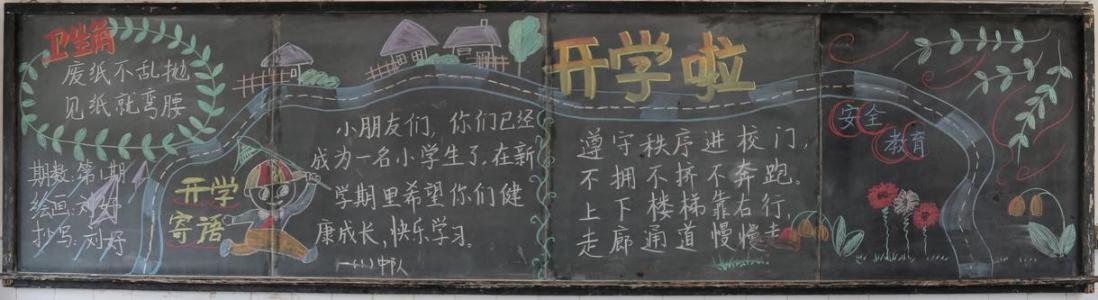 卫生角
废纸不乱抛
见纸就弯腰
期数:第1期
绘画:刘好
抄写:刘好
开学
寄语
小朋友们,你们已经
成为一名小学生了.在新
学期里希望你们健
康成长,快乐学习。
一(1)中队
开学啦
遵守秩序进校门,
不拥不挤不奔跑。
上下楼梯靠右行,
走廊通道慢慢走
安全
教育